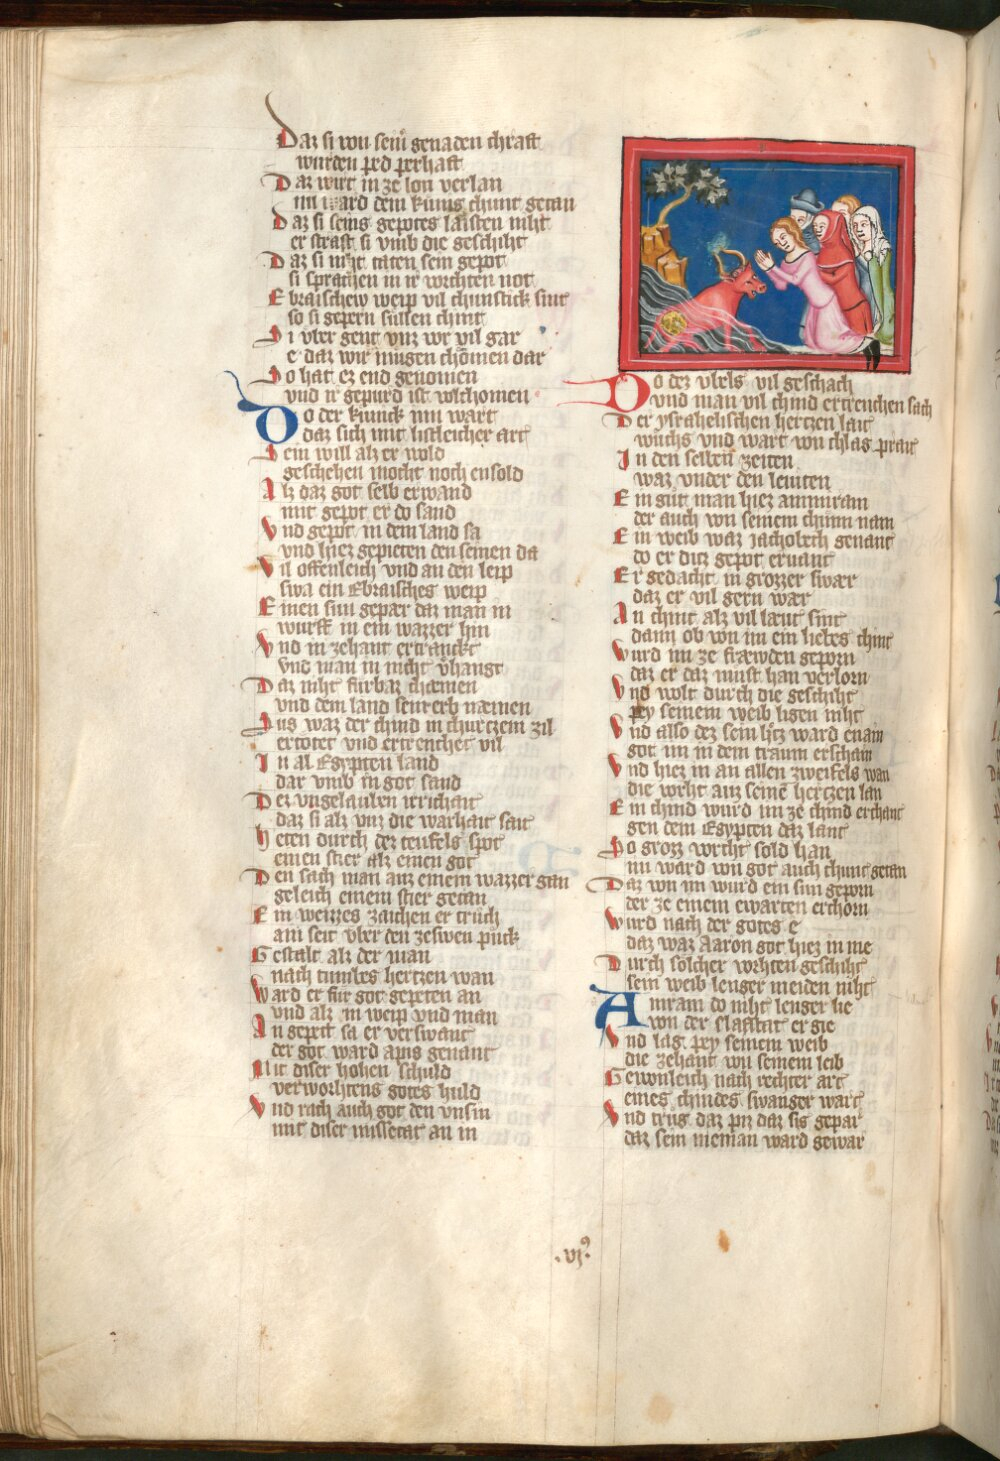 Daz si von sein̄ genaden chraft
wurden ped perhaft
Daz wirt in ze lon verlan
nu ward dem kunig chunt getan
Daz si seins gepotes laisten niht
er straft si vmb die geschiht
Daz si niht taten sein gepot
si sprachen in ir vorchten not
Ebraischew weip vil chunstick sint
so si gepern sullen chint
Si vber gent vnz wir vil gar
e daz wir mugen chomen dar
So hat ez end genomen
vnd ir gepurd ist volchomen
Do der kunick nu wart
daz sich mit listleicher art
Sein will alz er wold
geschehen mocht noch ensold
Alz daz got selb erwand
mit gepot er do sand
Vnd gepot in dem land sa
vnd hiez gepieten den seinen da
Vil offenleich vnd an den leip
swa ein Ebraisches weip
Einen sun gepær daz man in
wurff in ein wazzer hin
Vnd in zehant ertranckt
vnd man in nicht v̄hangt
Daz niht furbaz chæmen
vnd dem land sein erb næmen
Sus waz der chind in churtzem zil
ertotet vnd ertrenchet vil
In al Egypten land
dar vmb in got sand
Dez vngelauben irrichait
daz si alz vnz die warhait sait
Heten durch dez teufels spot
einen stier alz einen got
Den sach man auz einem wazzer gan
geleich einem stier getan
Ein weizzes zaichen er truch
am seit vber den zeswen puck
Gestalt alz der man
nach tumbes hertzen wan
Ward er fur got gepeten an
vnd alz in weip vnd man
An gepett sa er verswant
der got ward apis genant
Mit diser hohen schuld
verworhtens gotes huld
Vnd rach auch got den vnsin
mit diser missetat an in
Do dez vbels vil geschach
vnd man vil chind ertrenchen sach
Der ysrahelischen hertzen lait
wuchs vnd wart von chlag prait
In den selben zeiten
waz vnder den leuiten
Ein gut man hiez ammiram
der auch von seinem chunn nam
Ein weib waz jachobech genant
do er ditz gepot ervant
Er gedacht in grozzer swær
daz er vil gern wær
An chint alz vil læut sint
dann ob von im ein liebes chint
Wurd im ze fræwden geporn
daz er daz must han verlorn
Vnd wolt durch die geschiht
pey seinem weib ligen niht
Vnd also dez sein hertz ward enain
got im in dem traum erschain
Vnd hiez in an allen zweifels wan
die vorht auz seinē hertzen lan
Ein chind wurd im ze chind erchant
gen dem Egypten daz lant
So grozz vorcht sold han
im ward von got auch chunt getan
Daz von im wurd ein sun geporn
der ze einem ewarten erchorn
Wurd nach der gotes e
daz waz Aaron got hiez in me
Durch solcher vorhten geschiht
sein weib lenger meiden niht
Amram do niht lenger lie
von der slafstat er gie
Vnd lag pey seinem weib
die zehant von seinem leib
Gewonleich nach rechter art
eines chindes swanger wart
Vnd trug daz piz daz sis gepar
daz sein nieman ward gewar
.vjꝰ.